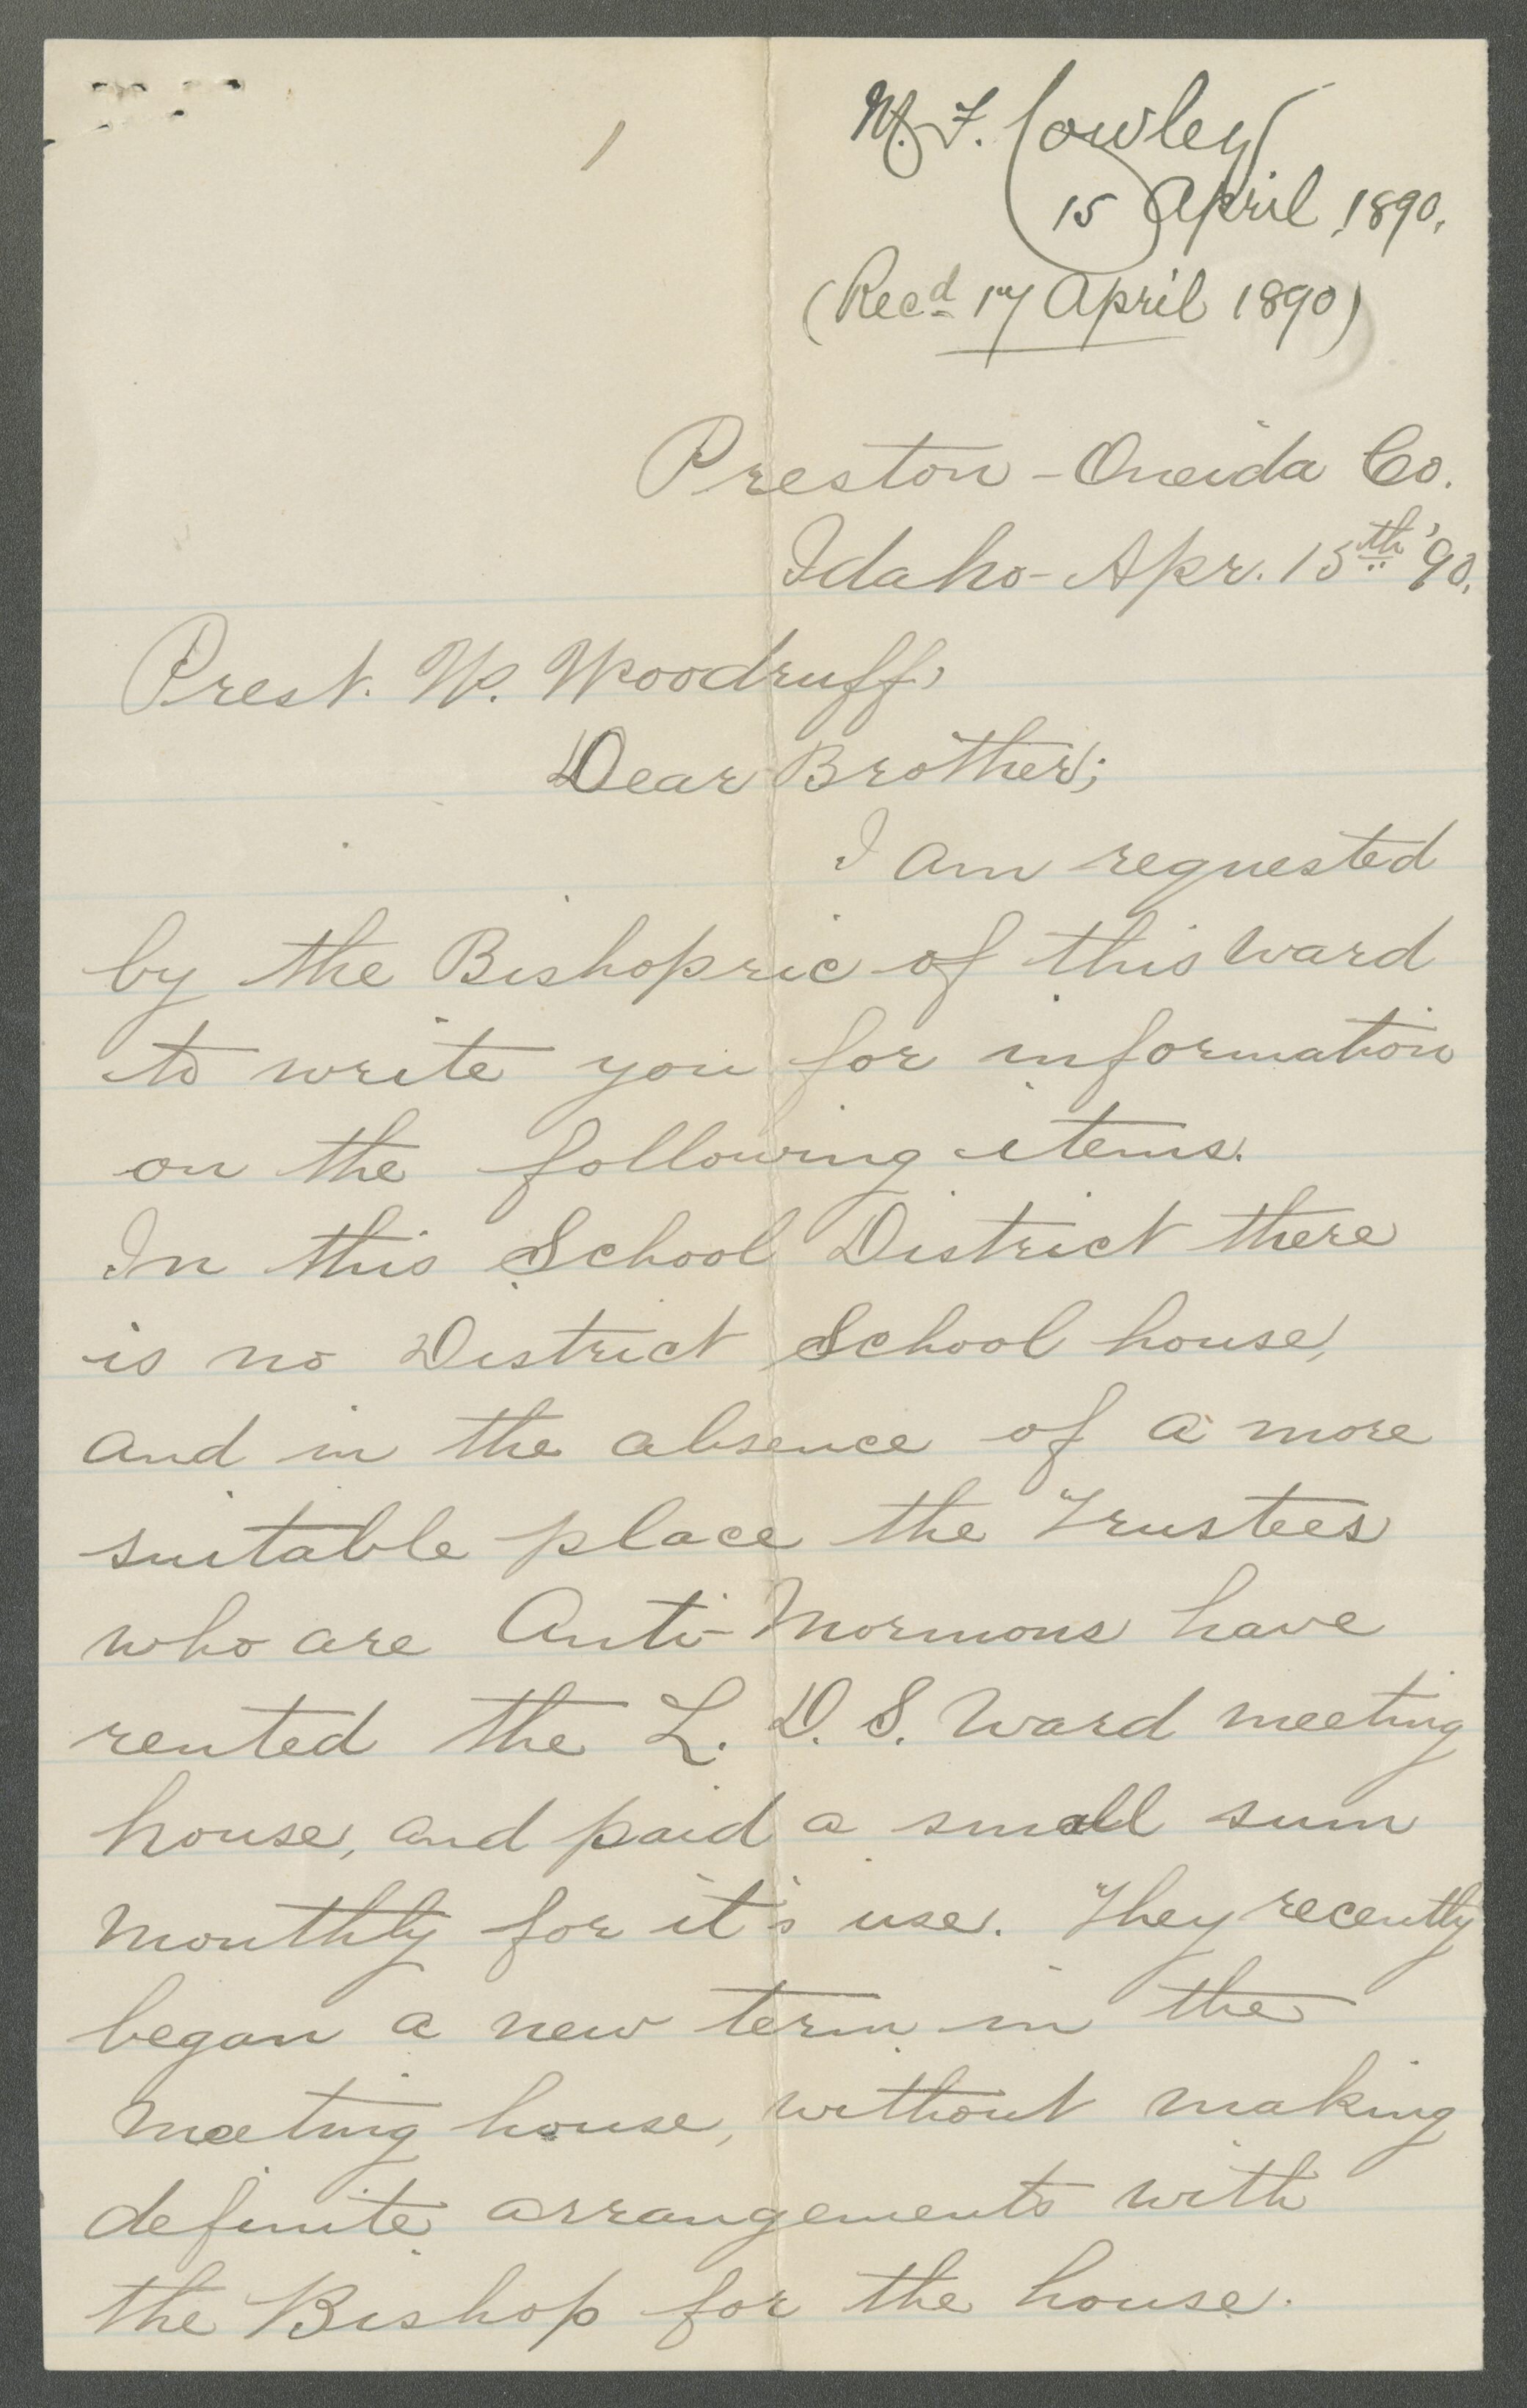 M. F. Cowley
15 April, 1890.
(Recd 17 April 1890)
Preston - Oneida Co.
Idaho - Apr. 15th '90.
Prest. W. Woodruff,
Dear Brother;
I am requested
by the Bishopric of this Ward
to write you for information
on the following items.
In this School District there
is no District School house,
and in the absence of a more
suitable place the Trustees
who are Anti-Mormons have
rented the L. D. S. Ward meeting
house, and paid a small sum
monthly for it's use. They recently
began a new term in the
meeting house, without making
definite arrangements with
the Bishop for the house.